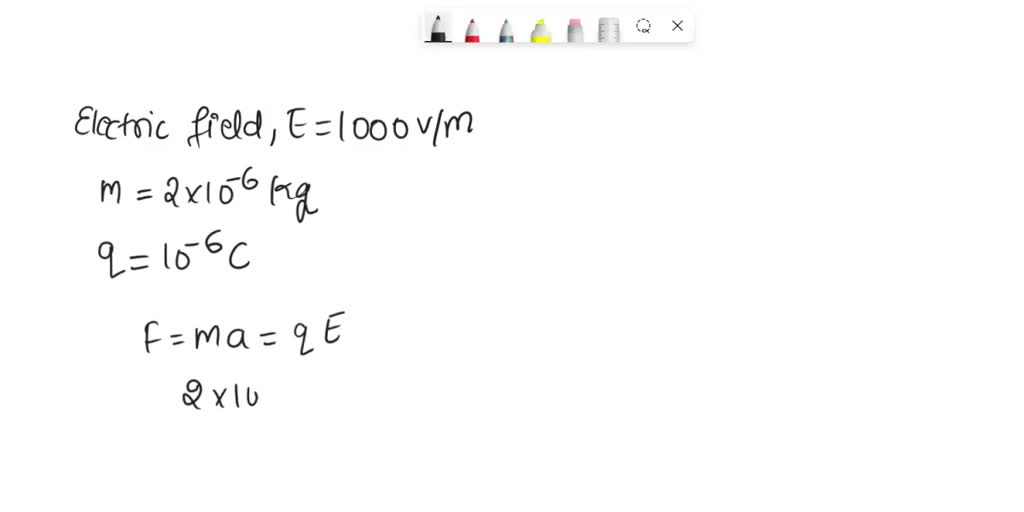 Electric field, E = 1000 V/m
m = 2×10⁻⁶ kg
q = 10⁻⁶ C
F = ma = qE
2×10